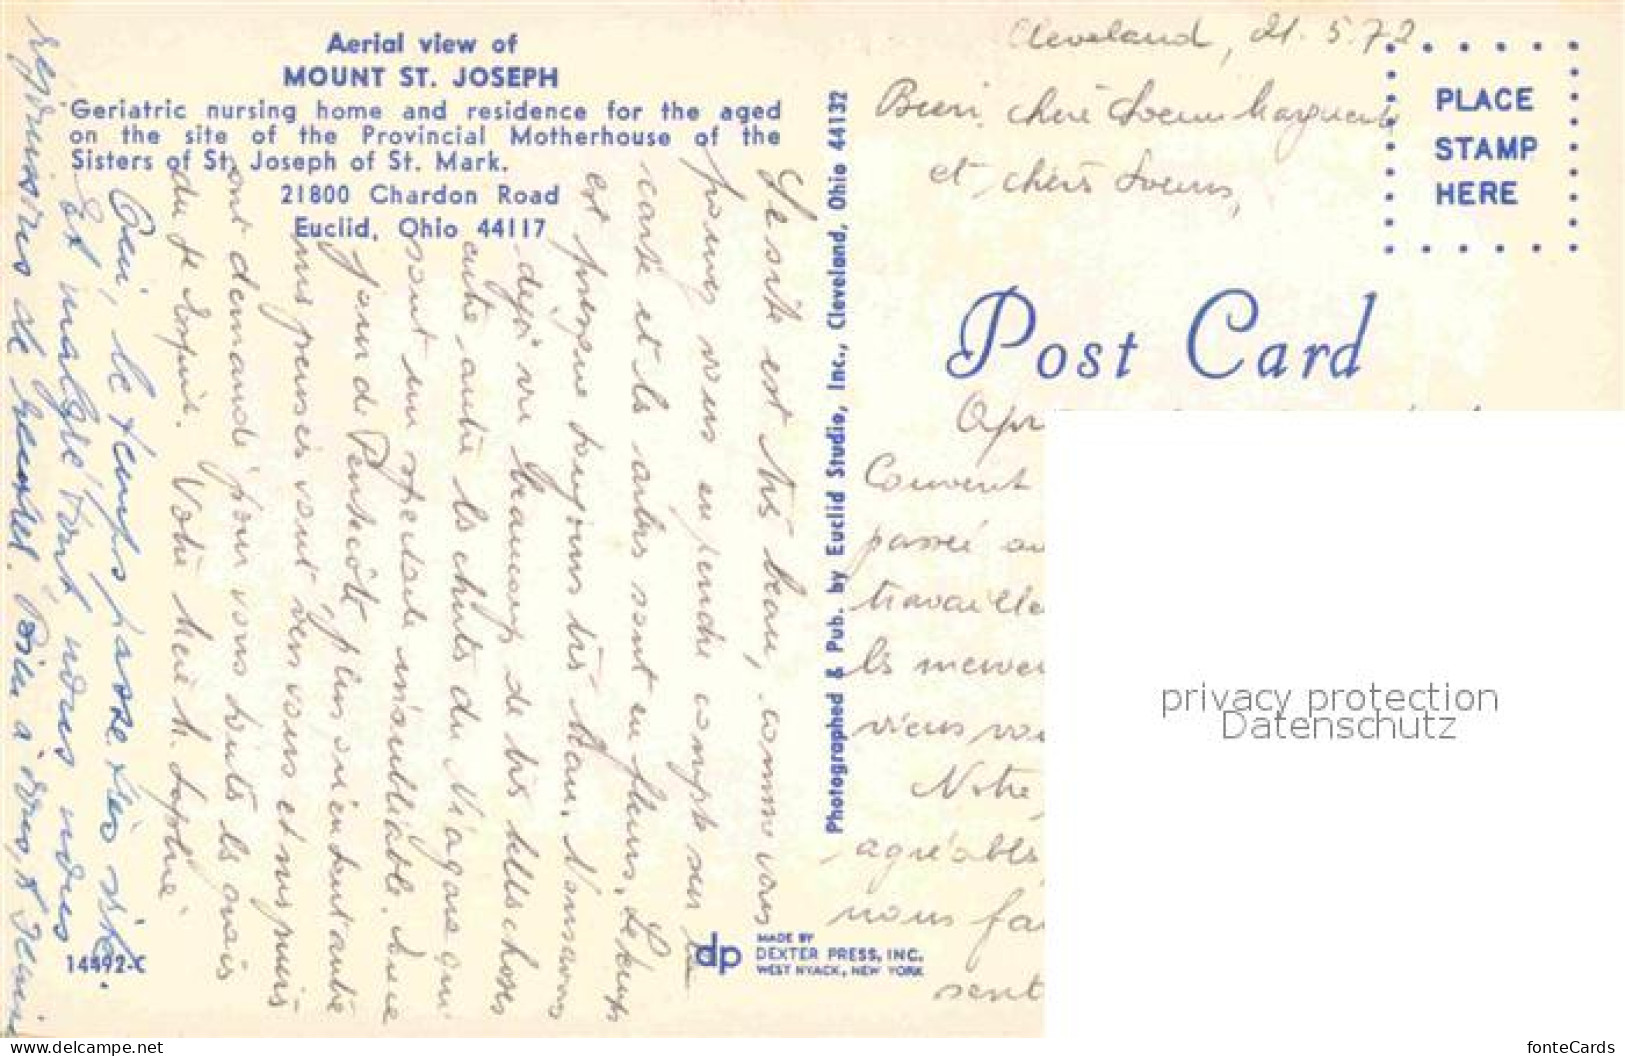 Aerial view of
MOUNT ST. JOSEPH
Geriatric nursing home and residence for the aged
on the site of the Provincial Motherhouse of the
Sisters of St. Joseph of St. Mark.
21800 Chardon Road
Euclid, Ohio 44117
Photographed & Pub. by Euclid Studio, Inc., Cleveland, Ohio 44132
Cleveland, 21. 5. 72
PLACE
STAMP
HERE
Bien chère Soeur Marguerite
et chères Soeurs,
Post Card
Apr
Couvent
passé au
travaille
les merve
viens vo
Notre
agréable
nous fai
sent
privacy protection
Datenschutz
Le site est très beau, comme vous
pouvez vous en rendre compte sur la
carte et les arbres sont en fleurs. Le temps
est presque toujours très beau. Nous avons
déjà vu beaucoup de très belles choses
entre autre les chutes du Niagara qui
sont un spectacle inoubliable.
jour de Pentecôte, plus qu'en tout autre
nos pensées vont vers vous et nos prières
ont demandé pour vous toutes les grâces
du St Esprit. Votre Mère M. Sophie
Oui, le temps passe très vite.
Et malgré tout nous nous
réjouissons de
14492-C
dp
MADE BY
DEXTER PRESS, INC.
WEST NYACK, NEW YORK
www.delcampe.net
fonteCards